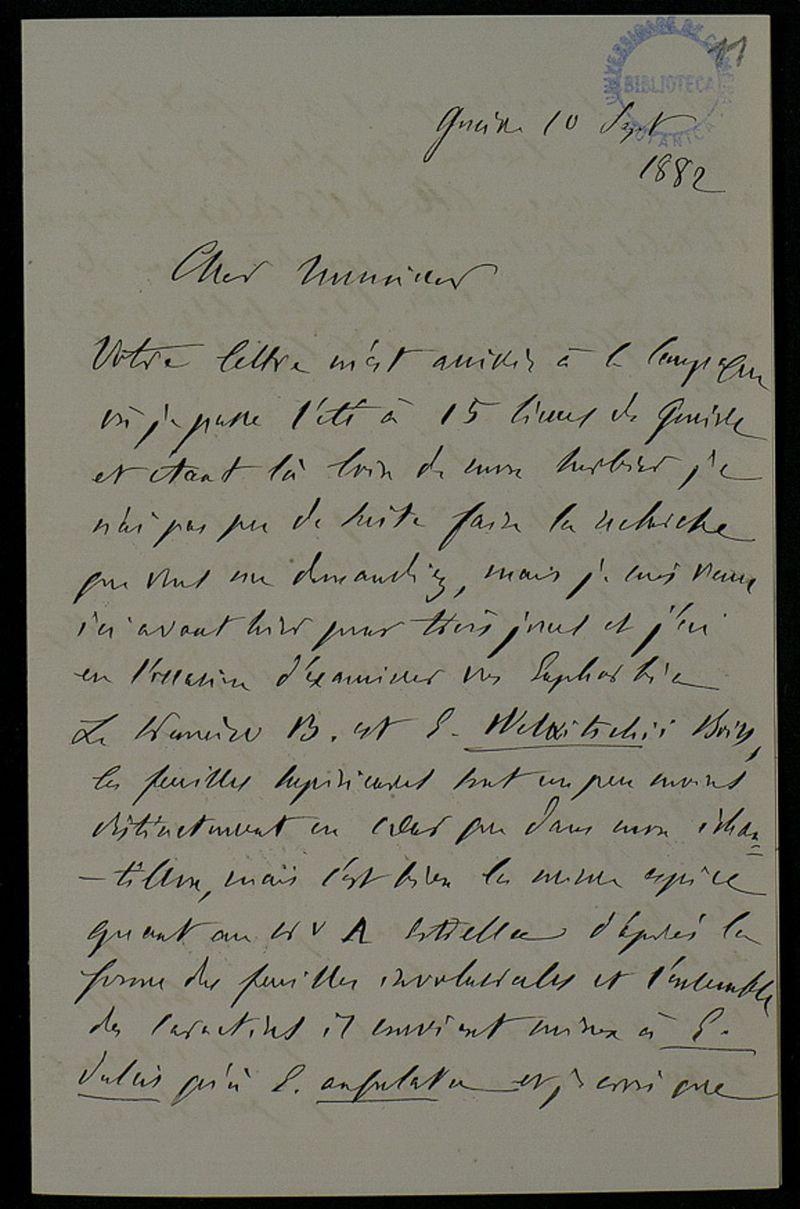 11
UNIVERSIDADE DE COIMBRA
BIBLIOTECA
BOTANICA
Genève 10 Sept
1882
Cher Monsieur
Votre lettre m'est arrivée à la Campagne
où je passe l'été à 15 lieues de Genève
et étant là loin de mon herbier je
n'ai pas pu de suite faire la recherche
que vous me demandiez, mais je suis venu
ici avant hier pour trois jours et j'ai
eu l'occasion d'examiner vos Euphorbia
Le numéro B. est E. Welwitschii Boiss,
les feuilles supérieures sont un peu moins
distinctement en cœur que dans mon échan=
-tillon, mais c'est bien la même espèce
quant au A d'après la
forme des feuilles involucrales et l'ensemble
des caractères il convient mieux à E.
dulcis qu'à E. angulata et je crois que